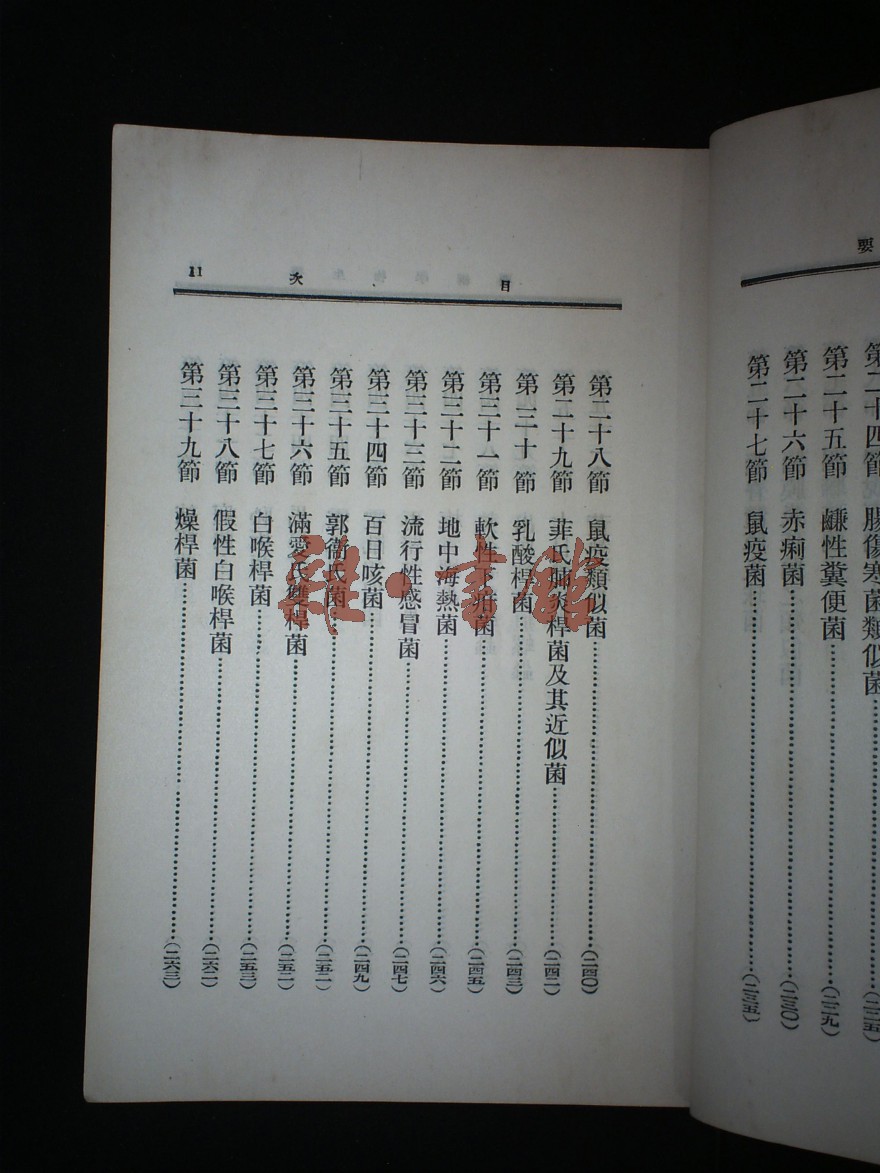 要
第二十四節 腸傷寒菌類似菌……(二二五)
第二十五節 鹻性糞便菌……(二二九)
第二十六節 赤痢菌……(二三〇)
第二十七節 鼠疫菌……(二三五)
目 次 11
第二十八節 鼠疫類似菌……(二四〇)
第二十九節 菲氏肺炎桿菌及其近似菌……(二四二)
第三十節 乳酸桿菌……(二四三)
第三十一節 軟性下疳菌……(二四五)
第三十二節 地中海熱菌……(二四六)
第三十三節 流行性感冒菌……(二四七)
第三十四節 百日咳菌……(二四九)
第三十五節 郭衞氏菌……(二五二)
第三十六節 滿愛氏雙桿菌……(二五二)
第三十七節 白喉桿菌……(二五三)
第三十八節 假性白喉桿菌……(二六二)
第三十九節 燥桿菌……(二六三)
雜·書館